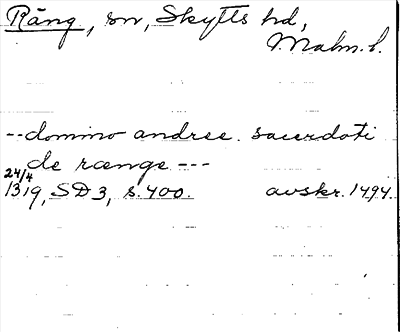 Räng, sn, Skytts hd,
Malm. l.
-- domino andree. sacerdoti
de rænge ---
24/4
1319, SD 3, s. 400. avskr. 1494.